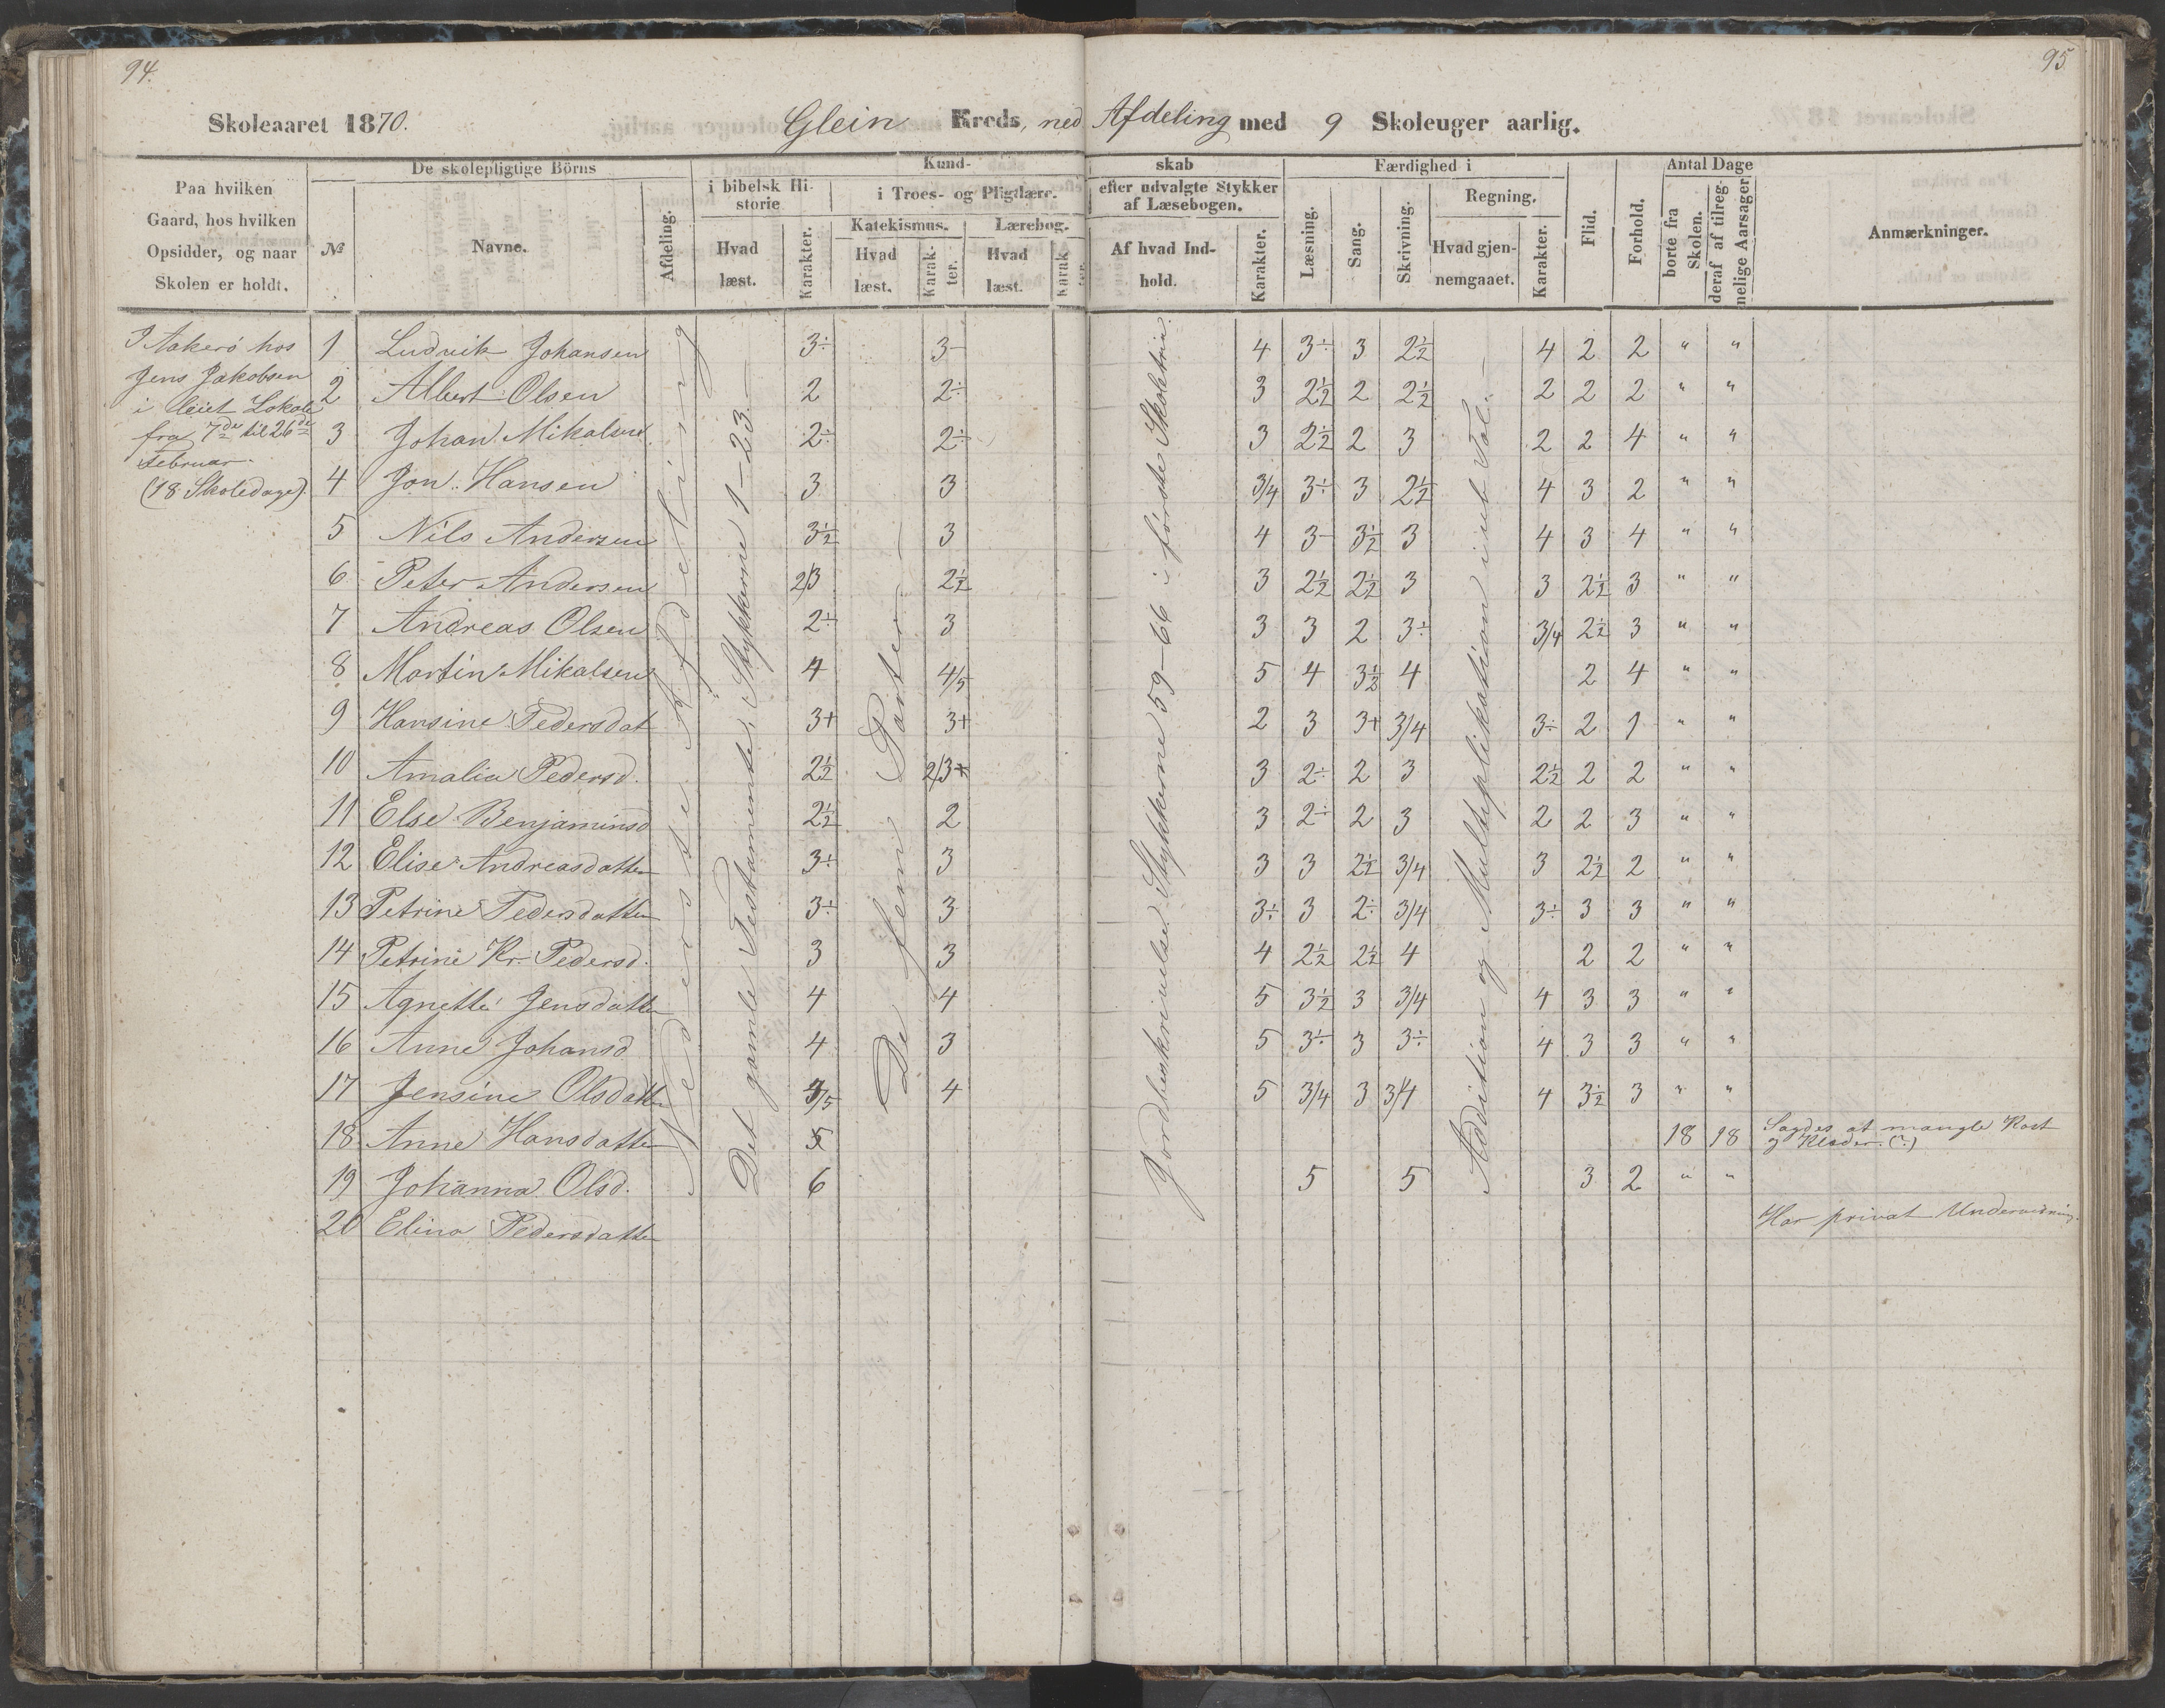 94.
95
Skoleaaret 1870. Glein Kreds, ned Afdeling med 9 Skoleuger aarlig.
Paa hvilken Gaard, hos hvilken Opsidder, og naar Skolen er holdt.
De skolepligtige Börns
№ Navne. Afdeling.
Kundskab
i bibelsk Historie
Hvad læst. Karakter.
i Troes- og Pligtlære.
Katekismus. Lærebog.
Hvad læst. Karakter. Hvad læst. Karakter.
efter udvalgte Stykker af Læsebogen.
Af hvad Indhold. Karakter.
Færdighed i
Læsning. Sang. Skrivning. Regning.
Hvad gjennemgaaet. Karakter.
Flid. Forhold.
Antal Dage
borte fra Skolen. deraf af tilregnelige Aarsager
Anmærkninger.
I Aakerö hos
Jens Jakobsen
i leiet Lokale
fra 7de til 26de
Februar.
(18 Skoledage).
Nederste Afdeling
Det gamle Testamente, Stykkerne 1-23.
De fem Parter.
Jordbeskrivelse Stykkerne 59-66 i förste Skoletrin.
Addition og Multiplikation i uet Tal.
1 Ludvik Johansen 3÷ 3- 4 3÷ 3 2½ 4 2 2 " "
2 Albert Olsen 2 2÷ 3 2½ 2 2½ 2 2 2 " "
3 Johan Mikalsen 2÷ 2÷ 3 2½ 2 3 2 2 4 " "
4 Jon Hansen 3 3 3/4 3÷ 3 2½ 4 3 2 " "
5 Nils Andersen 3½ 3 4 3- 3½ 3 4 3 4 " "
6 Peter Andersen 2/3 2½ 3 2½ 2½ 3 3 2½ 3 " "
7 Andreas Olsen 2÷ 3 3 3 2 3÷ 3/4 2½ 3 " "
8 Martin Mikalsen 4 4/5 5 4 3½ 4 2 4 " "
9 Hansine Pedersdat 3+ 3+ 2 3 3+ 3/4 3÷ 2 1 " "
10 Amalia Pedersd. 2½ 2/3+ 3 2÷ 2 3 2½ 2 2 " "
11 Else Benjaminsd 2½ 2 3 2÷ 2 3 2 2 3 " "
12 Elise Andreasdatter 3÷ 3 3 3 2½ 3/4 3 2½ 2 " "
13 Petrine Pedersdatter 3÷ 3 3÷ 3 2÷ 3/4 3÷ 3 3 " "
14 Petrine Kr. Pedersd. 3 3 4 2½ 2½ 4 2 2 " "
15 Agnette Jensdatter 4 4 5 3½ 3 3/4 4 3 3 " "
16 Anne Johansd 4 3 5 3÷ 3 3÷ 4 3 3 " "
17 Jensine Olsdatter 4/5 4 5 3/4 3 3/4 4 3½ 3 " "
18 Anne Hansdatter 5 18 18 Sagdes at mangle Kost
og Klæder. (?)
19 Johanna Olsd. 6 5 5 3 2 " "
20 Elina Pedersdatter Har privat Underviisning.